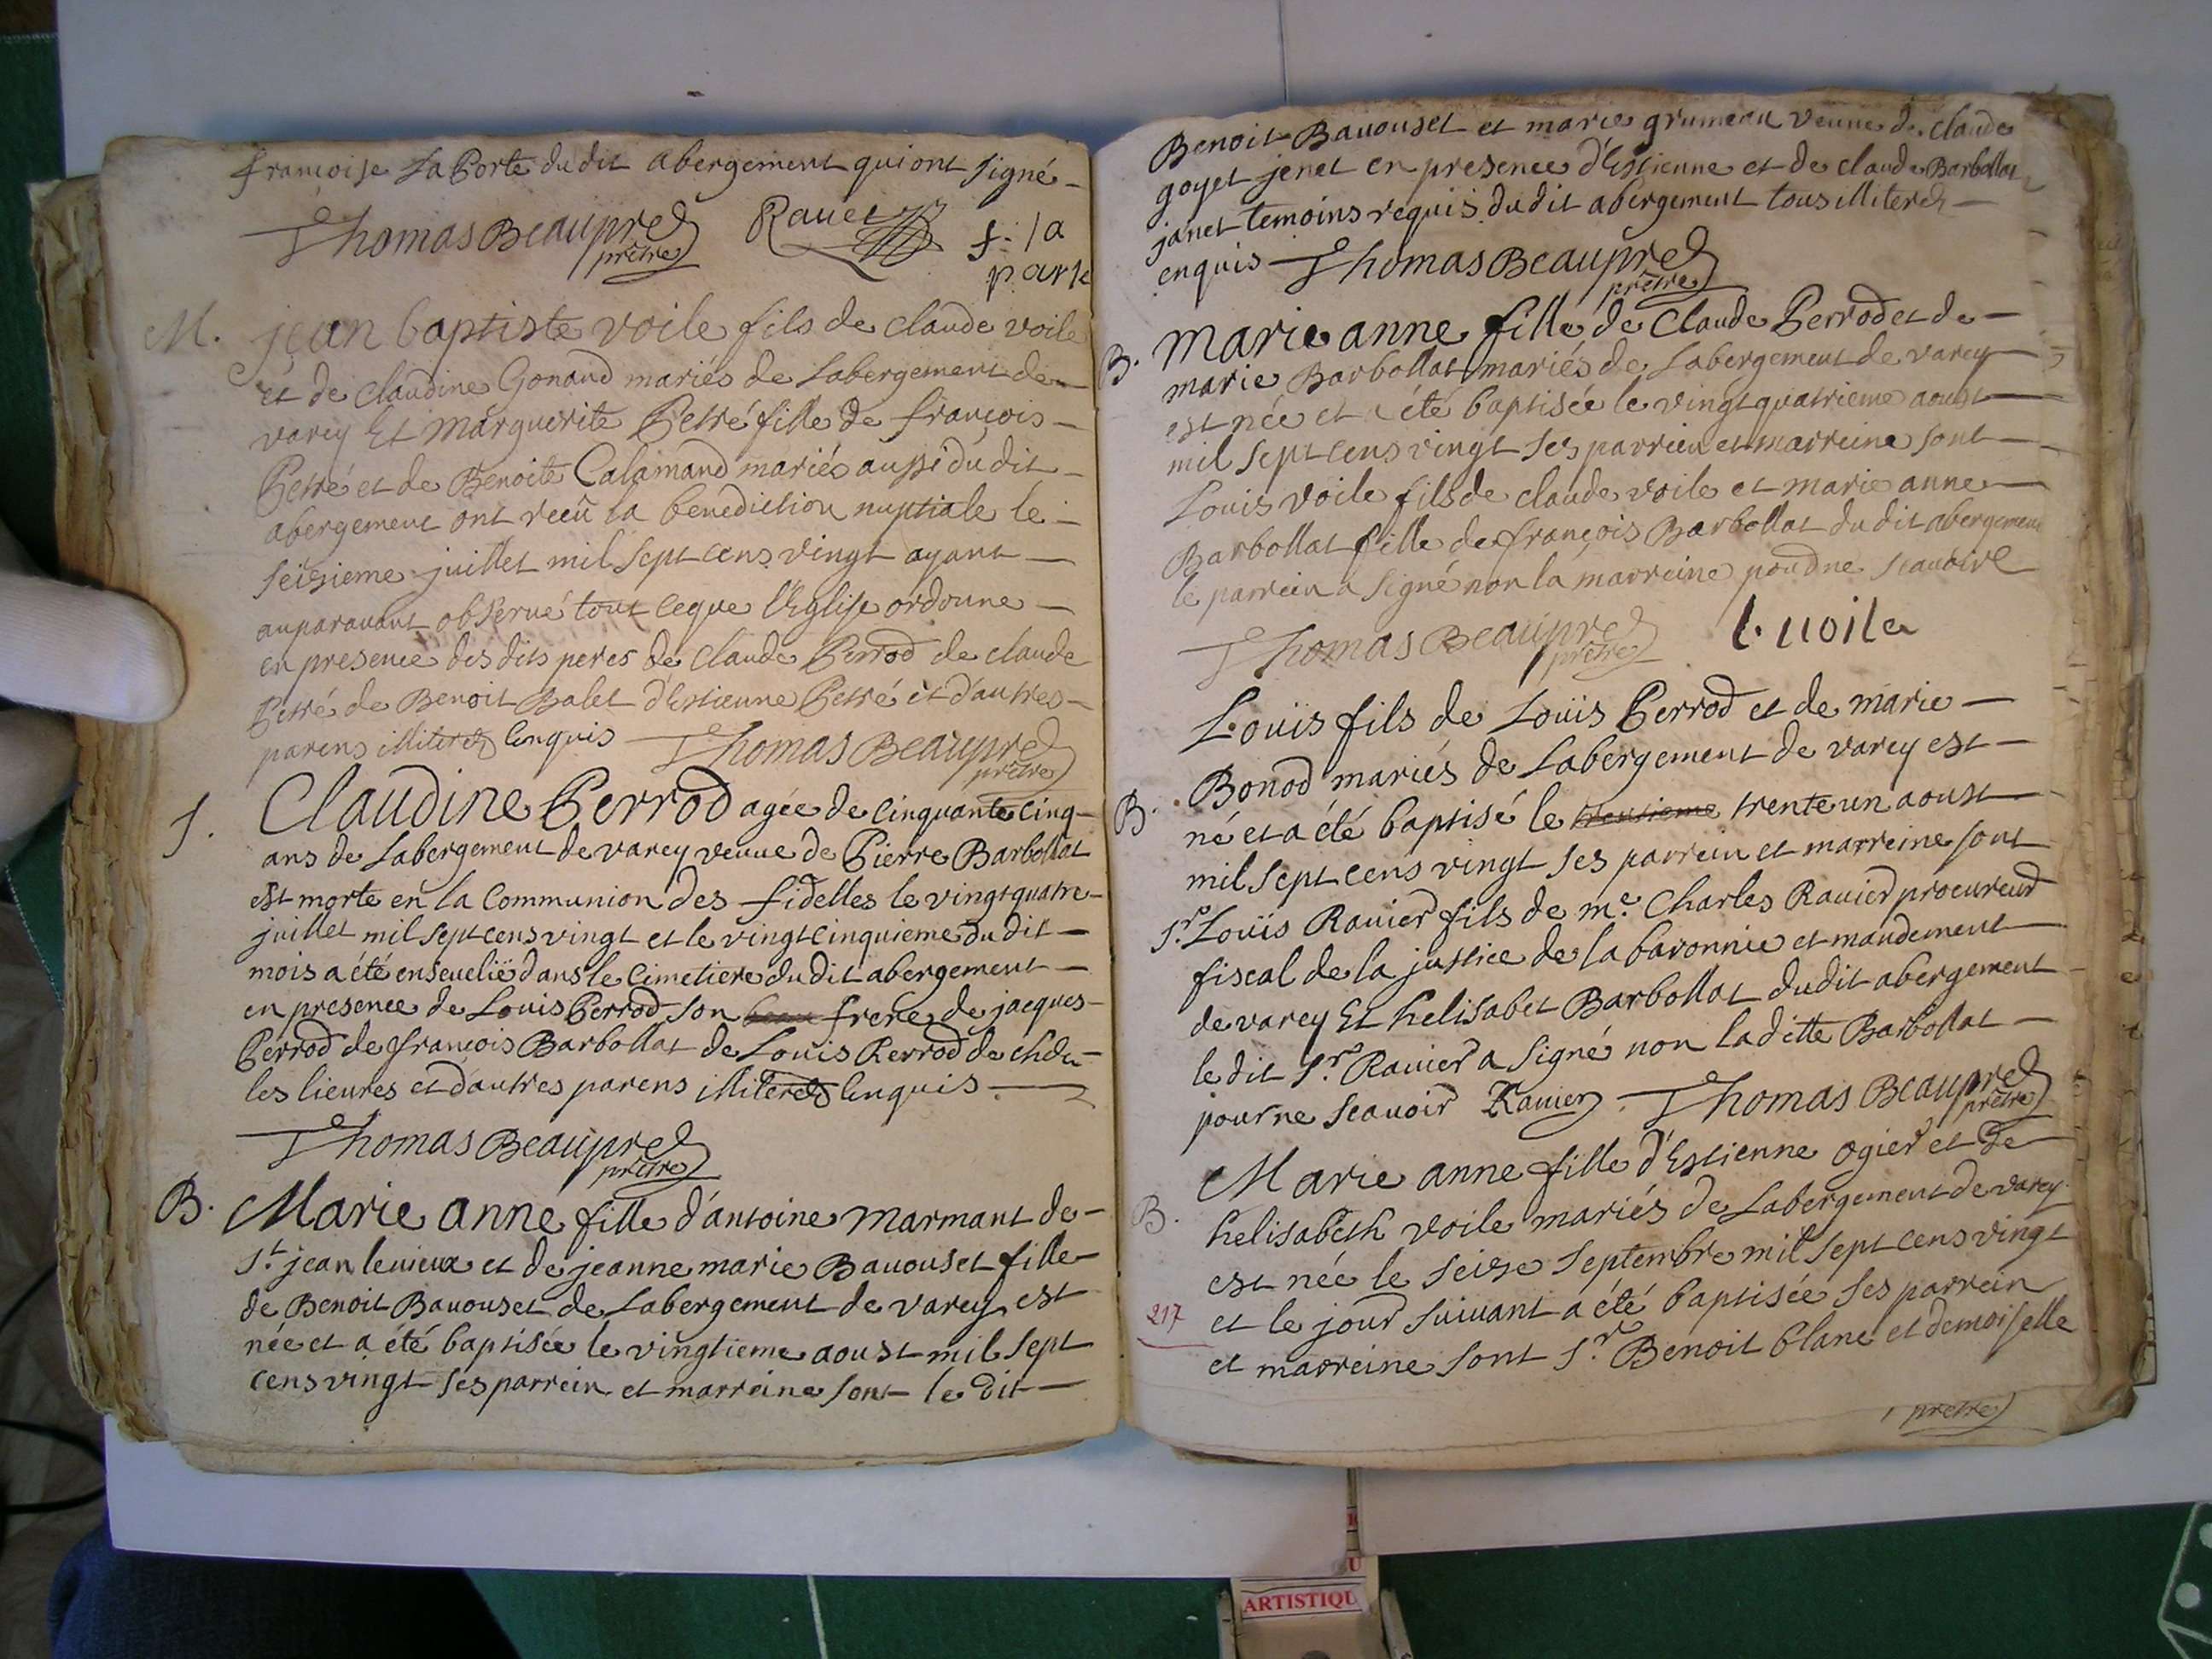 françoise La Porte du dit abergement qui ont signé
Thomas Beaupred
prêtre
Rauet
f. la
porte
M.
jean baptiste voile fils de claude voile
et de claudine Gonand mariés de Labergement de
varey Et marguerite Petré fille de françois
Petré et de Benoite Calamand mariés aussi du dit
abergement ont receu la benediction nuptiale le
seisieme juillet mil sept cens vingt ayant
auparauant obserué tout ce que l'Eglise ordonne
en presence des dits peres de claude Perrod de claude
Petré de Benoit Balet d'Estienne Petré et d'autres
parens illiterez Enquis Thomas Beaupred
prêtre
S.
Claudine Perrod agée de cinquante cinq
ans de Labergement de varey veuue de Pierre Barbollat
est morte en la Communion des fidelles le vingt quatre
juillet mil sept cens vingt et le vingt cinquieme du dit
mois a été enseuelië dans le Cimetiere du dit abergement
en presence de Louis Perrod son frere de jacques
Perrod de françois Barbollat de Louis Perrod de chés
les lieures et d'autres parens illiterez Enquis
Thomas Beaupred
prêtre
B.
Marie anne fille d'antoine Marmant de
St. jean le uieux et de jeanne marie Bauouset fille
de Benoit Bauouset de Labergement de varey est
née et a été baptisée le vingtieme aoust mil sept
cens vingt ses parrein et marreine sont le dit
Benoit Bauouset et marie grumeau veuue de claude
goyet jenet en presence d'Estienne et de claude Barbollat
janet temoins requis du dit abergement tous illiterez
enquis Thomas Beaupred
prêtre
B.
Marie anne fille de Claude Perrod et de
marie Barbollat mariés de Labergement de varey
est née et a été baptisée le vingt quatrieme aoust
mil sept cens vingt ses parrein et marreine sont
Louis voile fils de claude voile et marie anne
Barbollat fille de françois Barbollat du dit abergement
le parrein a signé non la marreine pour ne scauoir
Thomas Beaupred
prêtre
l. uoile
B.
Louïs fils de Louïs Perrod et de marie
Bonod mariés de Labergement de varey est
né et a été baptisé le trente un aoust
mil sept cens vingt ses parrein et marreine sont
Sr. Louïs Rauier fils de me. Charles Rauier procureur
fiscal de la justice de la baronnie et mandement
de varey Et helisabet Barbollat du dit abergement
le dit Sr. Rauier a signé non la ditte Barbollat
pour ne scauoir Rauier Thomas Beaupred
prêtre
B.
Marie anne fille d'Estienne ogier et de
helisabeth voile mariés de Labergement de varey
est née le seise septembre mil sept cens vingt
217
et le jour suiuant a été baptisée ses parrein
et marreine sont Sr. Benoit blanc et demoiselle
prêtre
ARTISTIQU